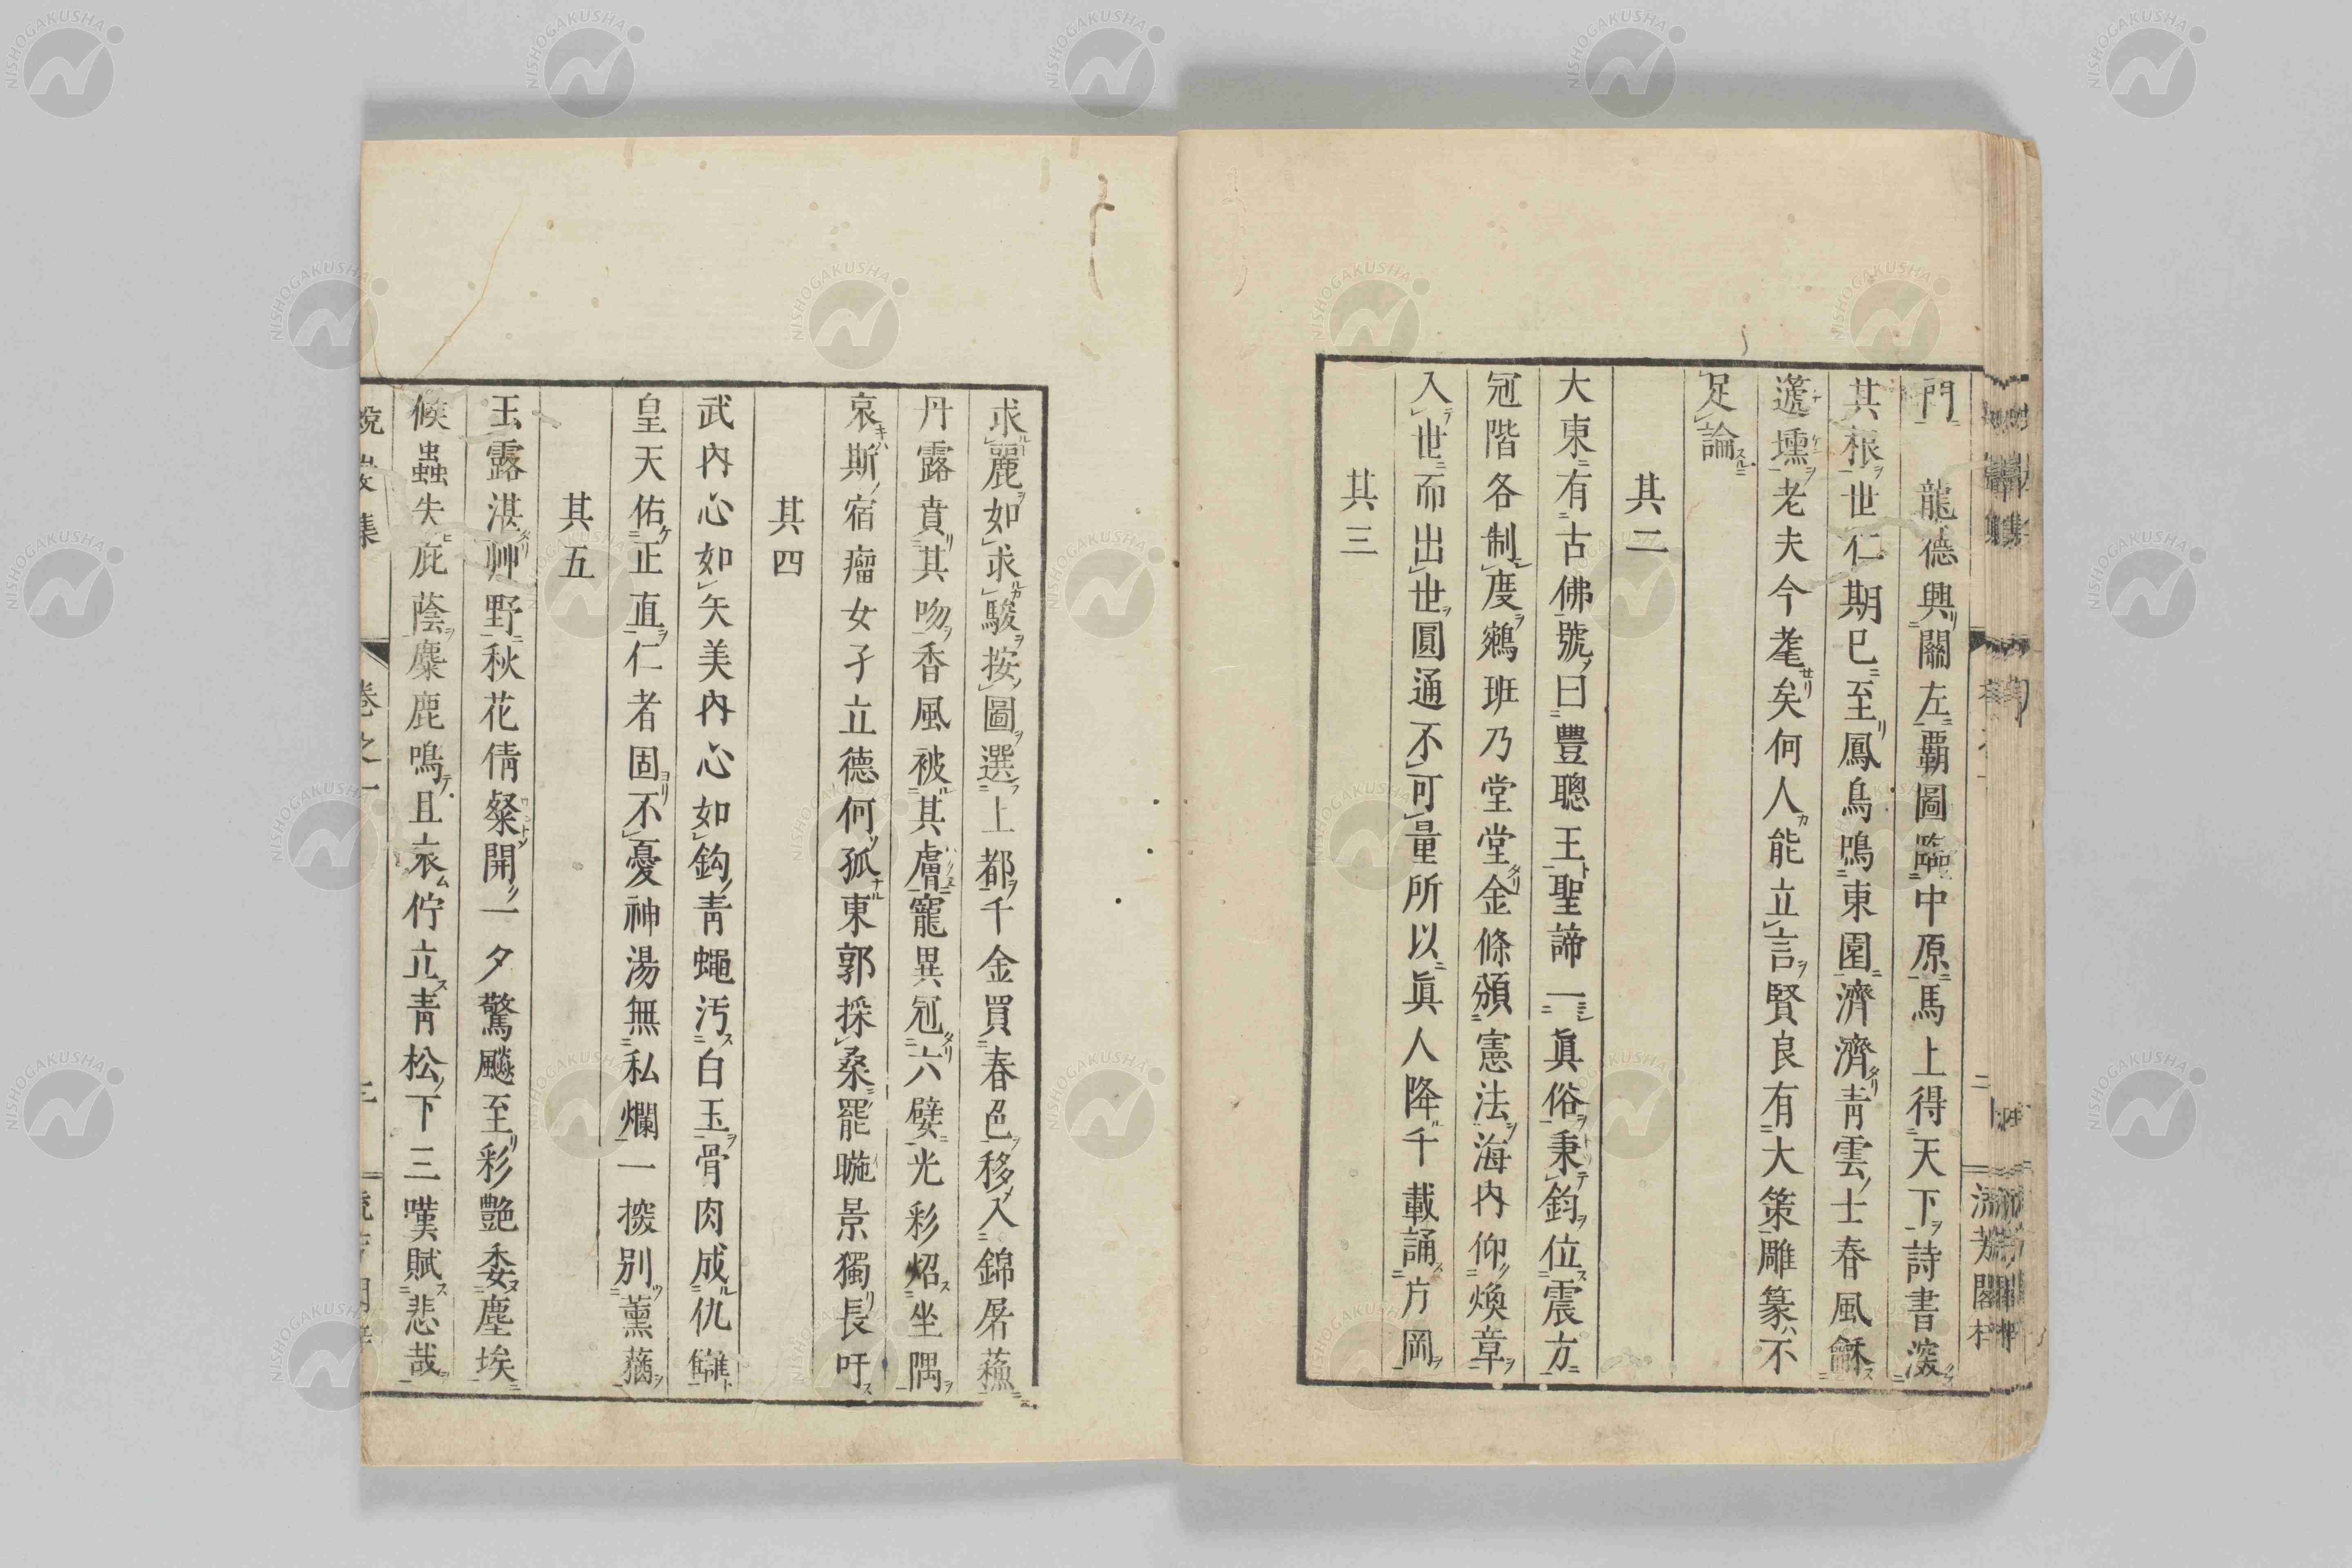 門　龍德興關左覇圖臨中原馬上得天下詩書深
其根世仁期已至鳳鳥鳴東園濟濟青雲士春風龢
蘧壎老夫今耄矣何人能立言賢良有大策雕篆不
足論
其二
大東有古佛號曰豐聰王聖諦一眞俗秉鈞位震方
冠階各制度鵷班乃堂堂金條頒憲法海內仰煥章
入世而出世圓通不可量所以眞人降千載誦方岡
其三
求麗如求駿按圖選上都千金買春色移入錦屠蘓
丹露賁其吻香風被其膚寵異冠六嬖光彩炤坐隅
哀斯宿瘤女孑立德何孤東郭採桑罷暆景獨長吁
其四
武內心如矢美內心如鈎靑蠅汚白玉骨肉成仇讎
皇天佑正直仁者固不憂神湯無私爛一探別薰蕕
其五
玉露湛艸野秋花倩粲開一夕驚飈至彩艷委塵埃
候蟲失庇蔭麋鹿鳴且哀佇立靑松下三嘆賦悲哉
集
卷之一
NISHOGAKUSHA